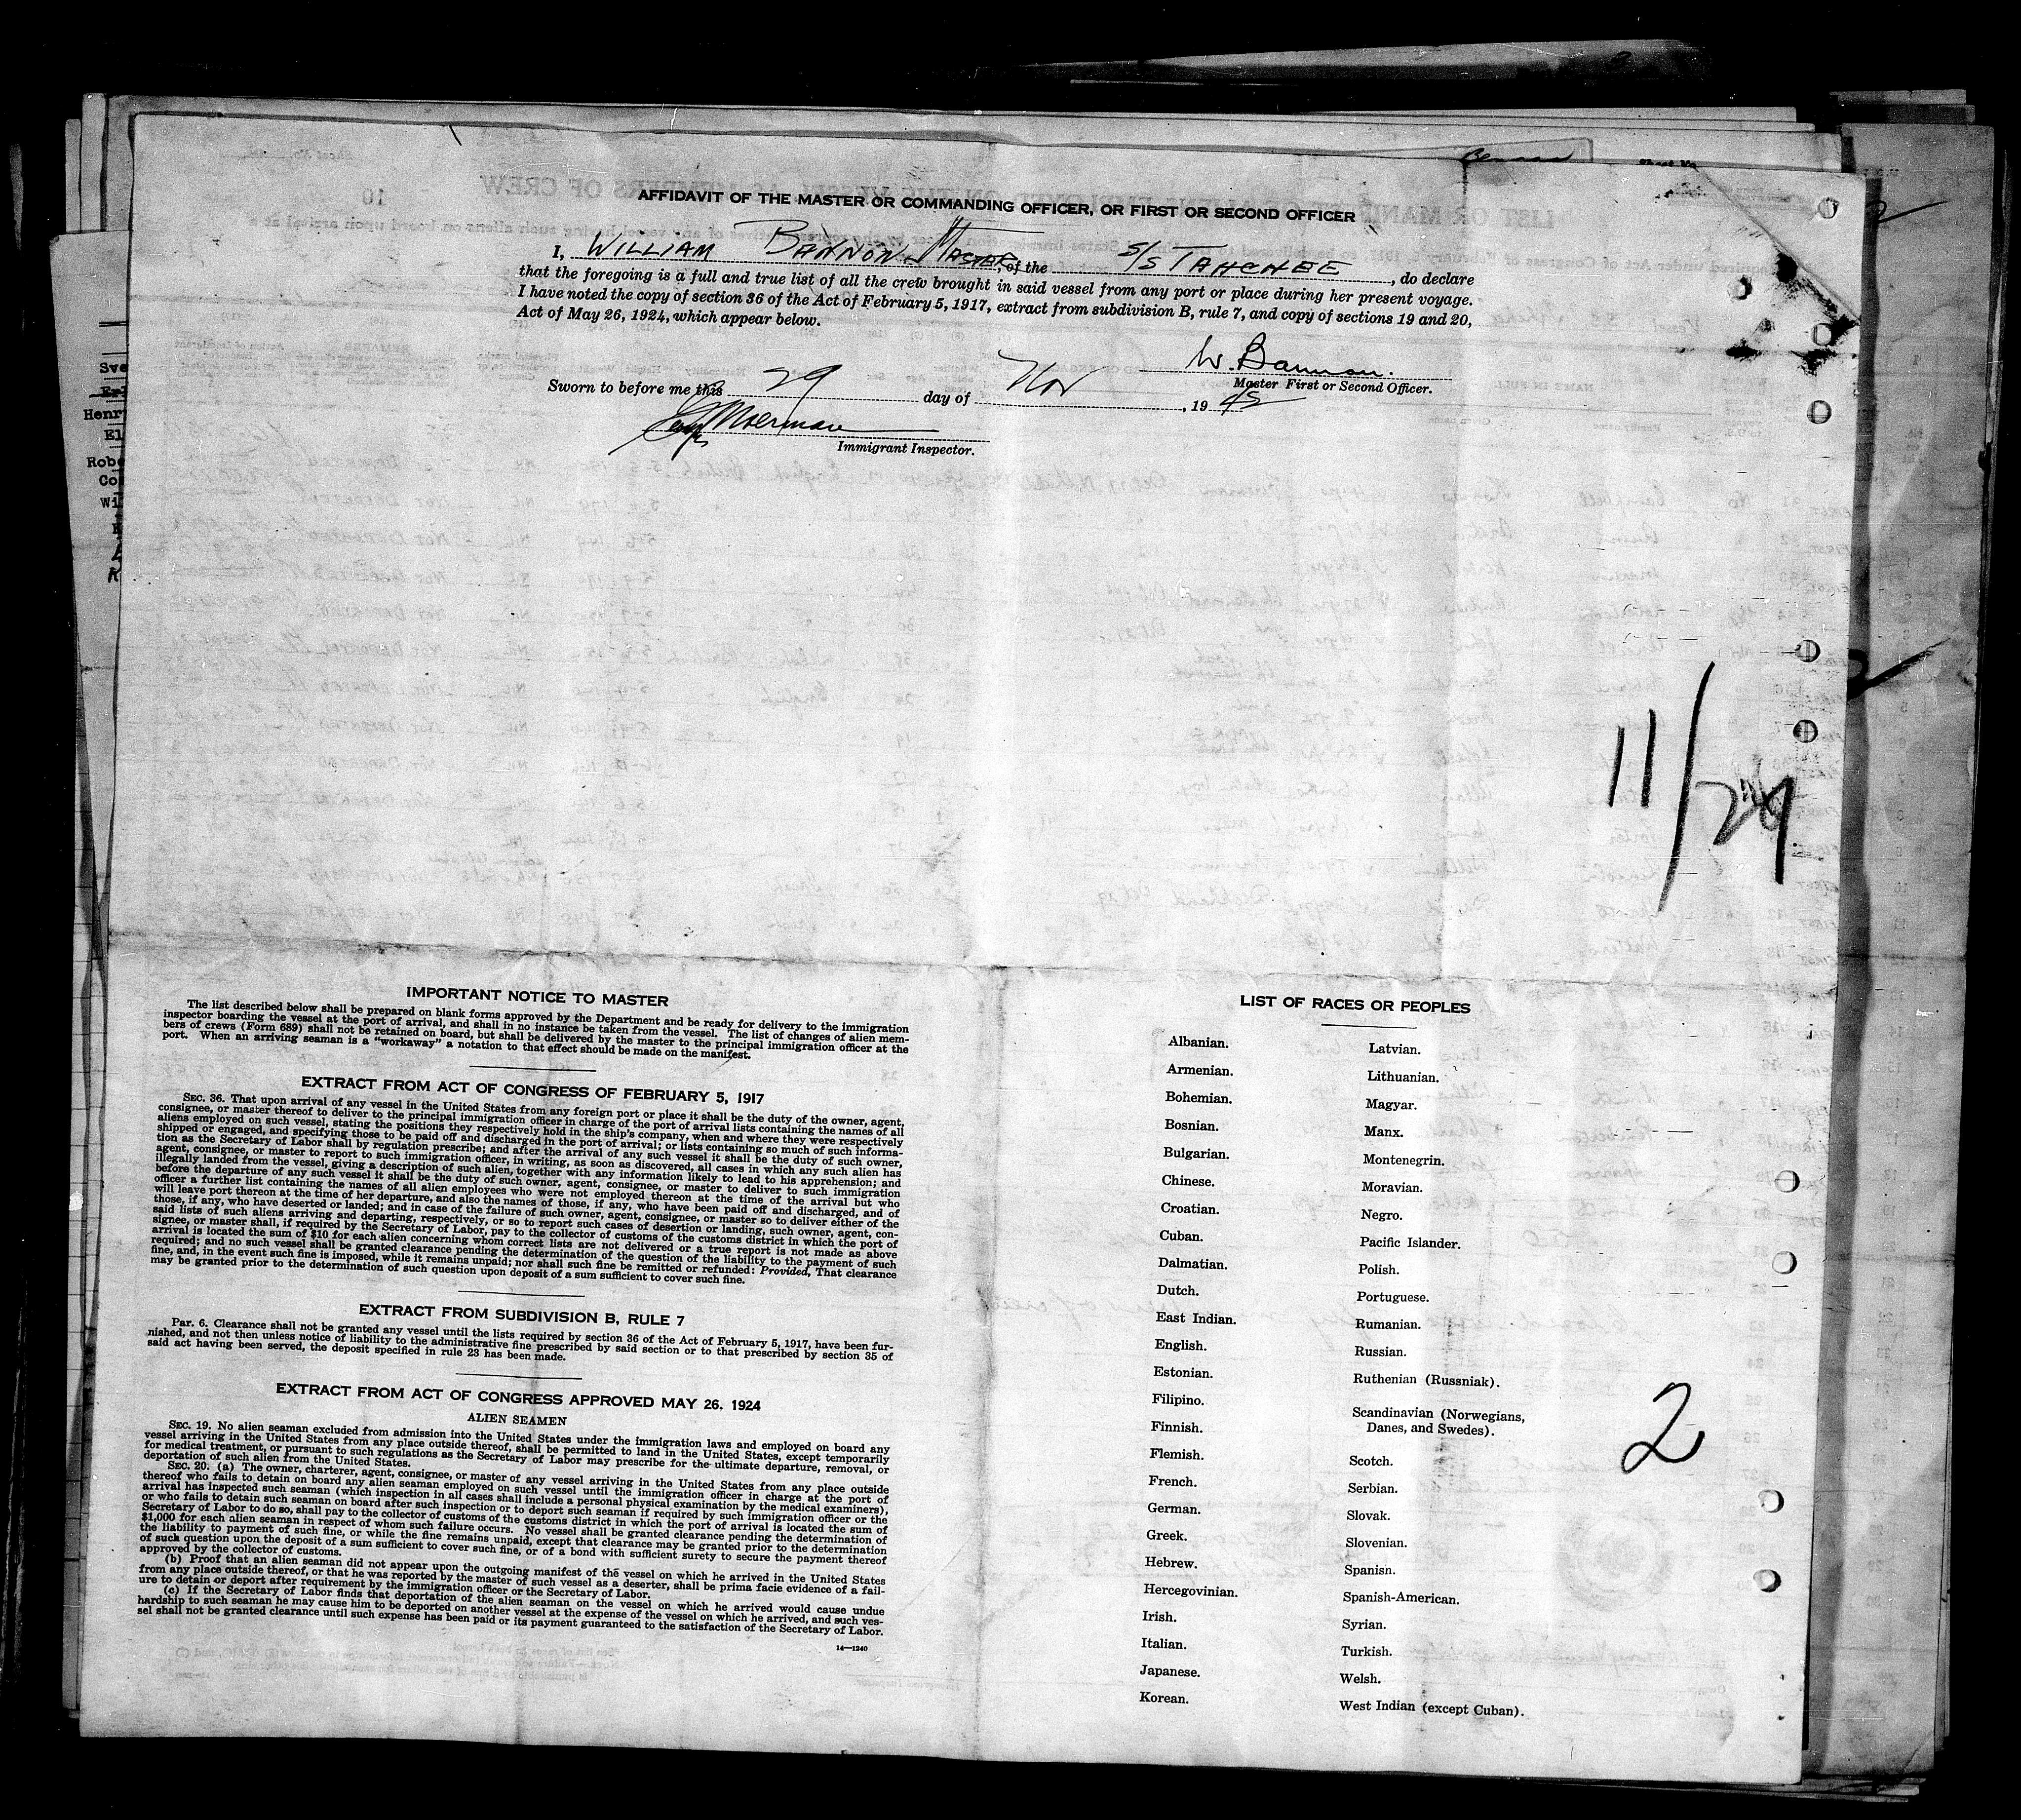 AFFIDAVIT OF THE MASTER OR COMMANDING OFFICER, OR FIRST OR SECOND OFFICER
I, WILLIAM BANNON. MASTER, of the S/S TAHCHEE, do declare
that the foregoing is a full and true list of all the crew brought in said vessel from any port or place during her present voyage.
I have noted the copy of section 36 of the Act of February 5, 1917, extract from subdivision B, rule 7, and copy of sections 19 and 20,
Act of May 26, 1924, which appear below.
W. Bannon.
Master First or Second Officer.
Sworn to before me this 29 day of Nov, 19
Immigrant Inspector.
11/
IMPORTANT NOTICE TO MASTER
The list described below shall be prepared on blank forms approved by the Department and be ready for delivery to the immigration
inspector boarding the vessel at the port of arrival, and shall in no instance be taken from the vessel. The list of changes of alien mem-
bers of crews (Form 689) shall not be retained on board, but shall be delivered by the master to the principal immigration officer at the
port. When an arriving seaman is a "workaway" a notation to that effect should be made on the manifest.
EXTRACT FROM ACT OF CONGRESS OF FEBRUARY 5, 1917
SEC. 36. That upon arrival of any vessel in the United States from any foreign port or place it shall be the duty of the owner, agent,
consignee, or master thereof to deliver to the principal immigration officer in charge of the port of arrival lists containing the names of all
aliens employed on such vessel, stating the positions they respectively hold in the ship's company, when and where they were respectively
shipped or engaged, and specifying those to be paid off and discharged in the port of arrival; or lists containing so much of such informa-
tion as the Secretary of Labor shall by regulation prescribe; and after the arrival of any such vessel it shall be the duty of such owner,
agent, consignee, or master to report to such immigration officer, in writing, as soon as discovered, all cases in which any such alien has
illegally landed from the vessel, giving a description of such alien, together with any information likely to lead to his apprehension; and
before the departure of any such vessel it shall be the duty of such owner, agent, consignee, or master to deliver to such immigration
officer a further list containing the names of all alien employees who were not employed thereon at the time of the arrival but who
will leave port thereon at the time of her departure, and also the names of those, if any, who have been paid off and discharged, and of
those, if any, who have deserted or landed; and in case of the failure of such owner, agent, consignee, or master so to deliver either of the
said lists of such aliens arriving and departing, respectively, or so to report such cases of desertion or landing, such owner, agent, con-
signee, or master shall, if required by the Secretary of Labor, pay to the collector of customs of the customs district in which the port of
arrival is located the sum of $10 for each alien concerning whom correct lists are not delivered or a true report is not made as above
required; and no such vessel shall be granted clearance pending the determination of the question of the liability to the payment of such
fine, and, in the event such fine is imposed, while it remains unpaid; nor shall such fine be remitted or refunded: Provided, That clearance
may be granted prior to the determination of such question upon deposit of a sum sufficient to cover such fine.
EXTRACT FROM SUBDIVISION B, RULE 7
Par. 6. Clearance shall not be granted any vessel until the lists required by section 36 of the Act of February 5, 1917, have been fur-
nished, and not then unless notice of liability to the administrative fine prescribed by said section or to that prescribed by section 35 of
said act having been served, the deposit specified in rule 23 has been made.
EXTRACT FROM ACT OF CONGRESS APPROVED MAY 26, 1924
ALIEN SEAMEN
SEC. 19. No alien seaman excluded from admission into the United States under the immigration laws and employed on board any
vessel arriving in the United States from any place outside thereof, shall be permitted to land in the United States, except temporarily
for medical treatment, or pursuant to such regulations as the Secretary of Labor may prescribe for the ultimate departure, removal, or
deportation of such alien from the United States.
SEC. 20. (a) The owner, charterer, agent, consignee, or master of any vessel arriving in the United States from any place outside
thereof who fails to detain on board any alien seaman employed on such vessel until the immigration officer in charge at the port of
arrival has inspected such seaman (which inspection in all cases shall include a personal physical examination by the medical examiners),
or who fails to detain such seaman on board after such inspection or to deport such seaman if required by such immigration officer or the
Secretary of Labor to do so, shall pay to the collector of customs of the customs district in which the port of arrival is located the sum of
$1,000 for each alien seaman in respect of whom such failure occurs. No vessel shall be granted clearance pending the determination of
the liability to payment of such fine, or while the fine remains unpaid, except that clearance may be granted prior to the determination
of such question upon the deposit of a sum sufficient to cover such fine, or of a bond with sufficient surety to secure the payment thereof
approved by the collector of customs.
(b) Proof that an alien seaman did not appear upon the outgoing manifest of the vessel on which he arrived in the United States
from any place outside thereof, or that he was reported by the master of such vessel as a deserter, shall be prima facie evidence of a fail-
ure to detain or deport after requirement by the immigration officer or the Secretary of Labor.
(c) If the Secretary of Labor finds that deportation of the alien seaman on the vessel on which he arrived would cause undue
hardship to such seaman he may cause him to be deported on another vessel at the expense of the vessel on which he arrived, and such ves-
sel shall not be granted clearance until such expense has been paid or its payment guaranteed to the satisfaction of the Secretary of Labor.
14—1240
LIST OF RACES OR PEOPLES
Albanian.
Armenian.
Bohemian.
Bosnian.
Bulgarian.
Chinese.
Croatian.
Cuban.
Dalmatian.
Dutch.
East Indian.
English.
Estonian.
Filipino.
Finnish.
Flemish.
French.
German.
Greek.
Hebrew.
Hercegovinian.
Irish.
Italian.
Japanese.
Korean.
Latvian.
Lithuanian.
Magyar.
Manx.
Montenegrin.
Moravian.
Negro.
Pacific Islander.
Polish.
Portuguese.
Rumanian.
Russian.
Ruthenian (Russniak).
Scandinavian (Norwegians,
Danes, and Swedes).
Scotch.
Serbian.
Slovak.
Slovenian.
Spanish.
Spanish-American.
Syrian.
Turkish.
Welsh.
West Indian (except Cuban).
2